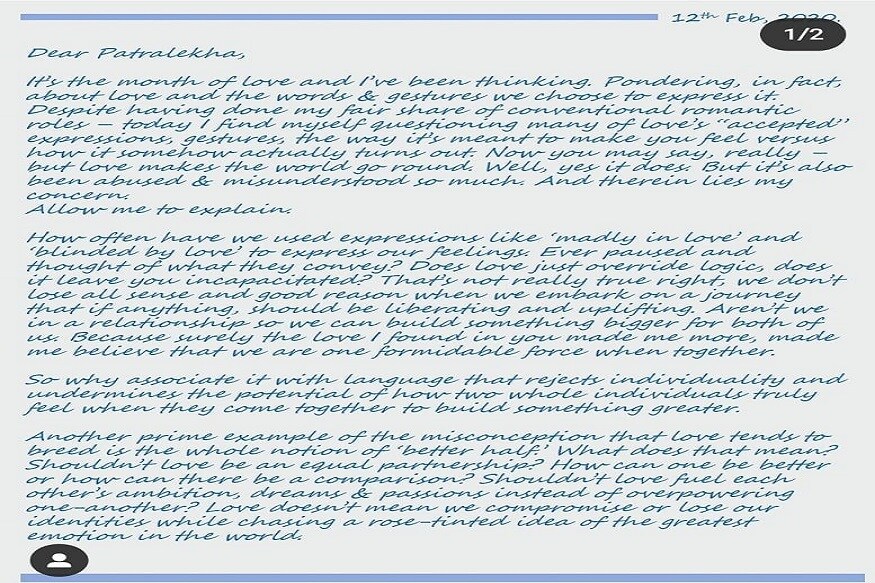 12th Feb, 2020.
1/2
Dear Patralekha,
It's the month of love and I've been thinking. Pondering, in fact,
about love and the words & gestures we choose to express it.
Despite having done my fair share of conventional romantic
roles – today I find myself questioning many of love's "accepted"
expressions, gestures, the way it's meant to make you feel versus
how it somehow actually turns out. Now you may say, really –
but love makes the world go round. Well, yes it does. But it's also
been abused & misunderstood so much. And therein lies my
concern.
Allow me to explain.
How often have we used expressions like 'madly in love' and
'blinded by love' to express our feelings. Ever paused and
thought of what they convey? Does love just override logic, does
it leave you incapacitated? That's not really true right, we don't
lose all sense and good reason when we embark on a journey
that if anything, should be liberating and uplifting. Aren't we
in a relationship so we can build something bigger for both of
us. Because surely the love I found in you made me more, made
me believe that we are one formidable force when together.
So why associate it with language that rejects individuality and
undermines the potential of how two whole individuals truly
feel when they come together to build something greater.
Another prime example of the misconception that love tends to
breed is the whole notion of 'better half.' What does that mean?
Shouldn't love be an equal partnership? How can one be better
or how can there be a comparison? Shouldn't love fuel each
other's ambition, dreams & passions instead of overpowering
one-another? Love doesn't mean we compromise or lose our
identities while chasing a rose-tinted idea of the greatest
emotion in the world.